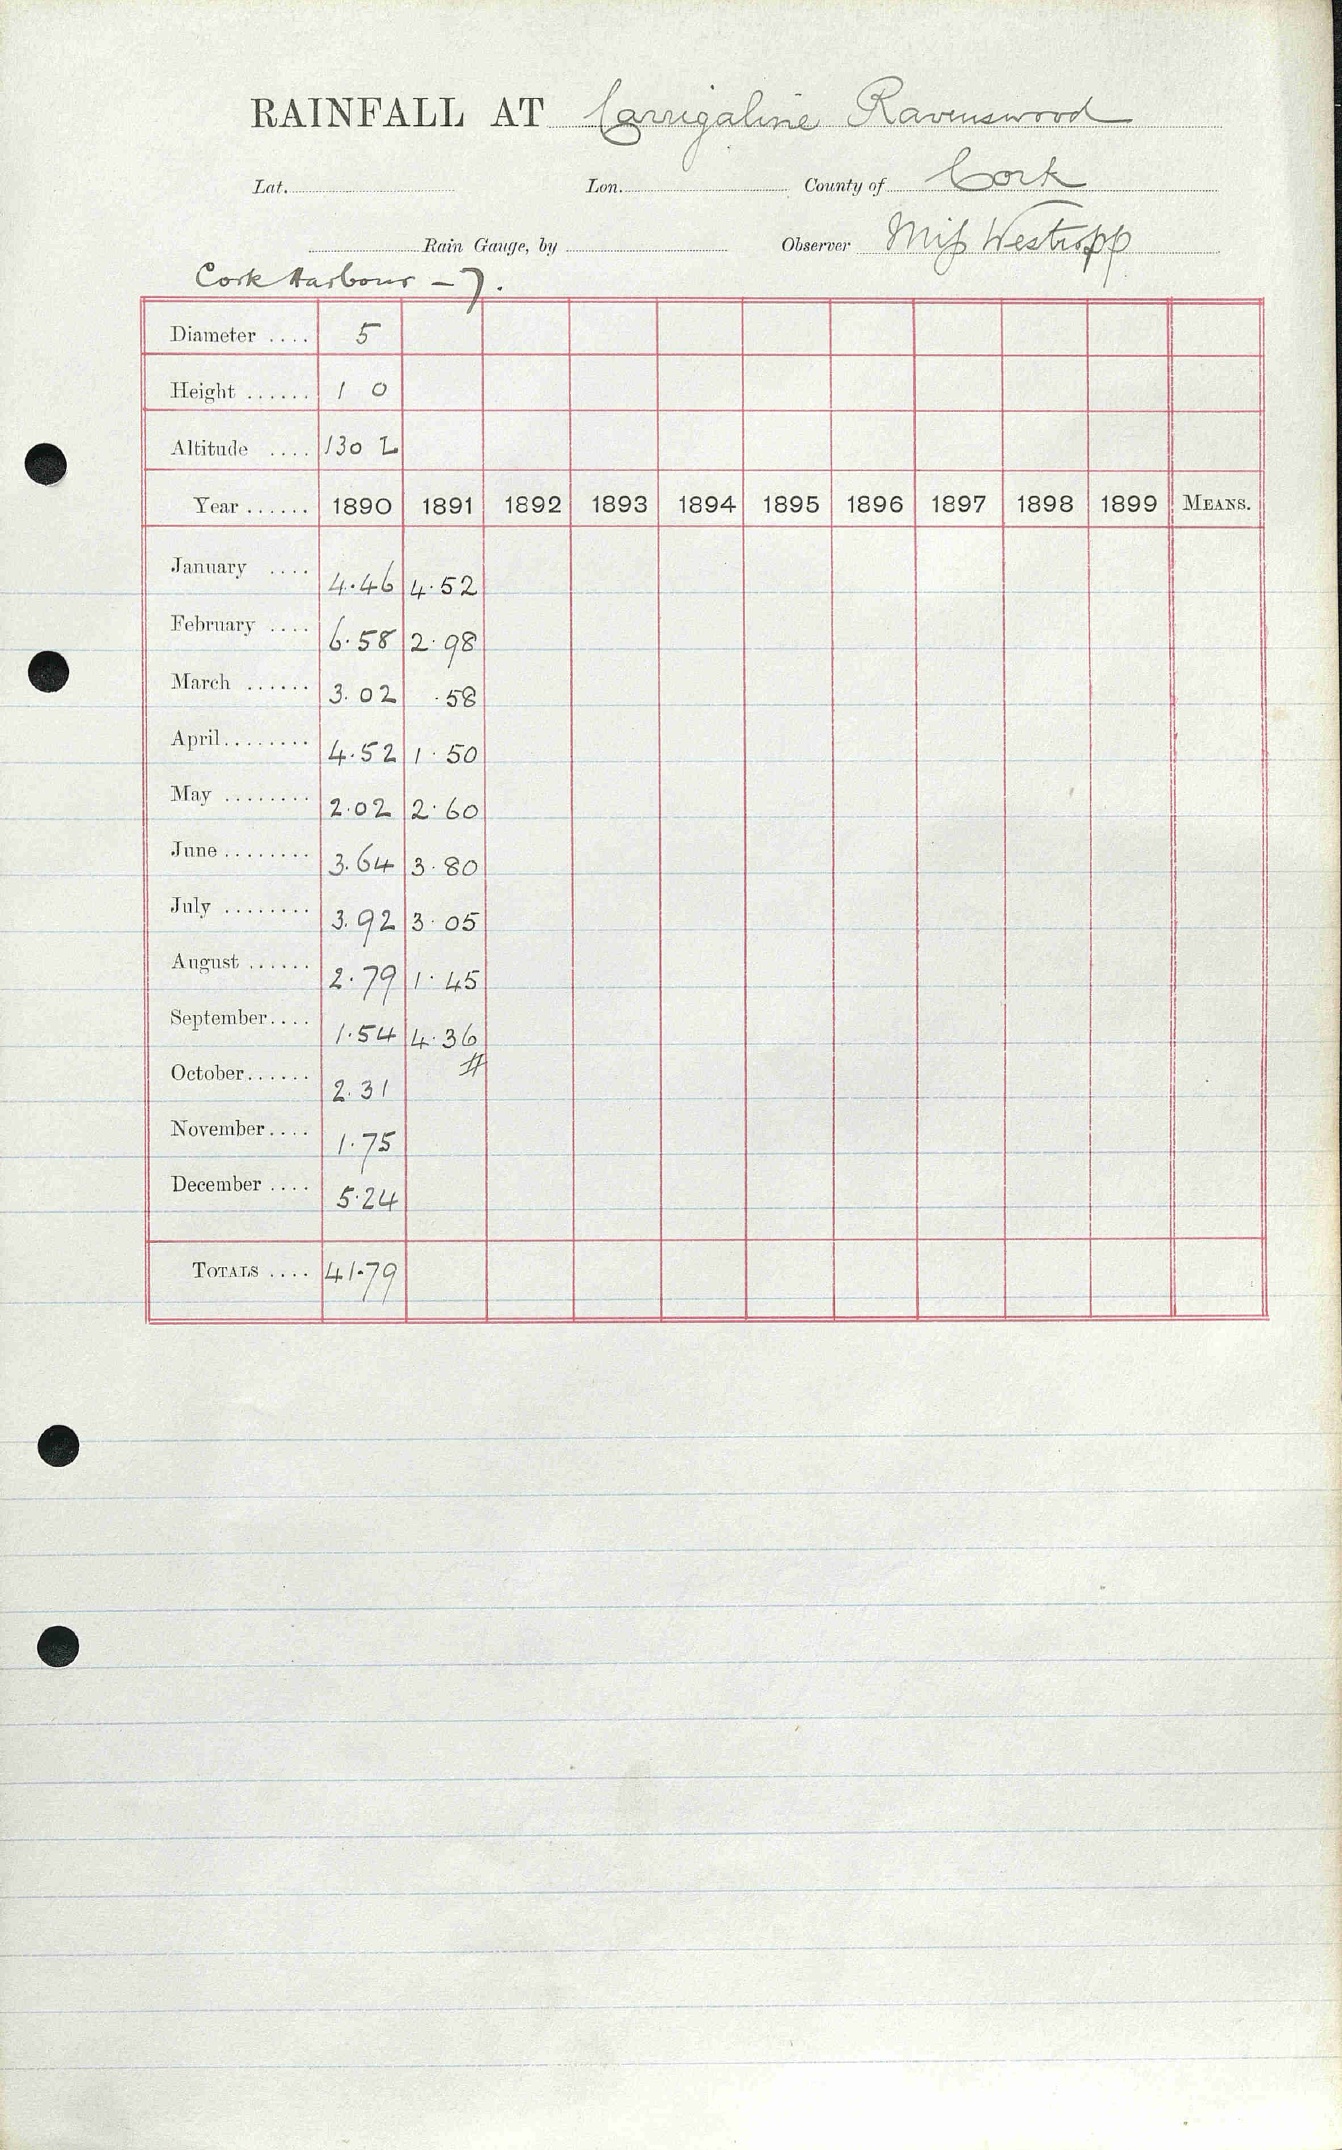 RAINFALL AT Carrigaline Ravenswood
Lat. Lon. County of Cork
Rain Gauge, by Observer Miss Westropp
Cork Harbour - 7.
Diameter .... 5
Height ...... 1 0
Altitude .... 130 L
Year ...... 1890 1891 1892 1893 1894 1895 1896 1897 1898 1899 MEANS.
January .... 4.46 4.52
February .... 6.58 2.98
March ...... 3.02 .58
April........ 4.52 1.50
May ........ 2.02 2.60
June ........ 3.64 3.80
July ........ 3.92 3.05
August ...... 2.79 1.45
September.... 1.54 4.36
October...... 2.31 #
November.... 1.75
December .... 5.24
TOTALS .... 41.79